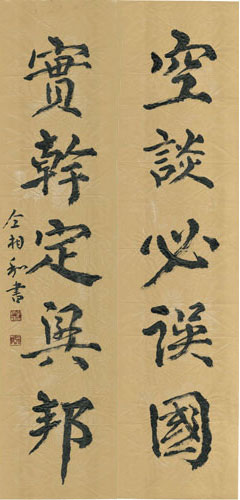 空談必誤國
實幹定興邦
仝相和書